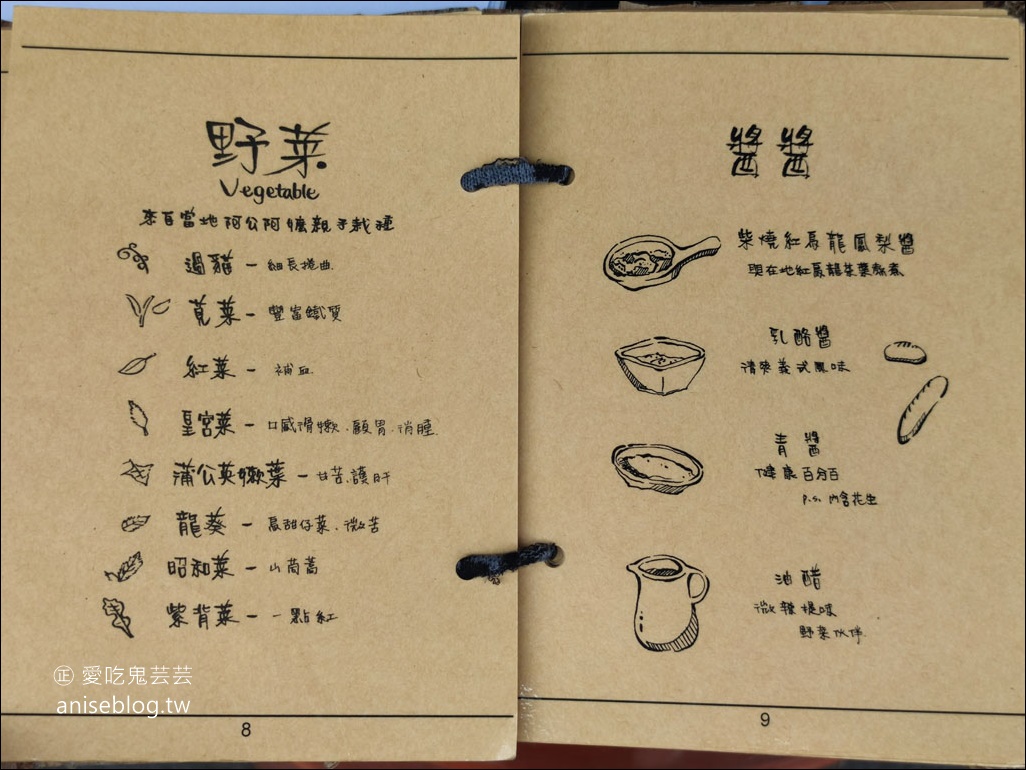 野菜
Vegetable
來自當地阿公阿嬤親手栽種
過貓 - 細長捲曲
莧菜 - 豐富鐵質
紅菜 - 補血
皇宮菜 - 口感滑嫩、顧胃、消腫
蒲公英嫩葉 - 甘苦、護肝
龍葵 - 烏甜仔菜、微苦
昭和菜 - 山茼蒿
紫背菜 - 一點紅
㊣ 愛吃鬼芸芸
aniseblog.tw
8
醬醬
柴燒紅烏龍鳳梨醬
與在地紅烏龍茶葉熬煮
乳酪醬
清爽義式風味
青醬
健康百分百
p.s. 內含花生
油醋
微辣提味
野菜伙伴
9